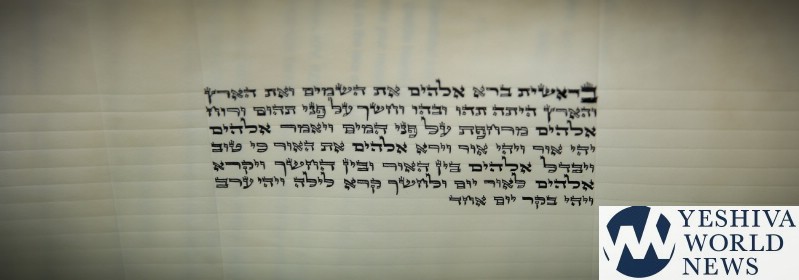 בראשית ברא אלהים את השמים ואת הארץ
והארץ היתה תהו ובהו וחשך על פני תהום ורוח
אלהים מרחפת על פני המים ויאמר אלהים
יהי אור ויהי אור וירא אלהים את האור כי טוב
ויבדל אלהים בין האור ובין החשך ויקרא
אלהים לאור יום ולחשך קרא לילה ויהי ערב
ויהי בקר יום אחד
YESHIVA
WORLD
NEWS